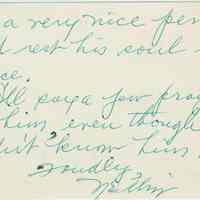 a very nice per
d rest his soul
ce.
I'll say a few pray
him, even though
dn't know him
Fondly,
Nellie